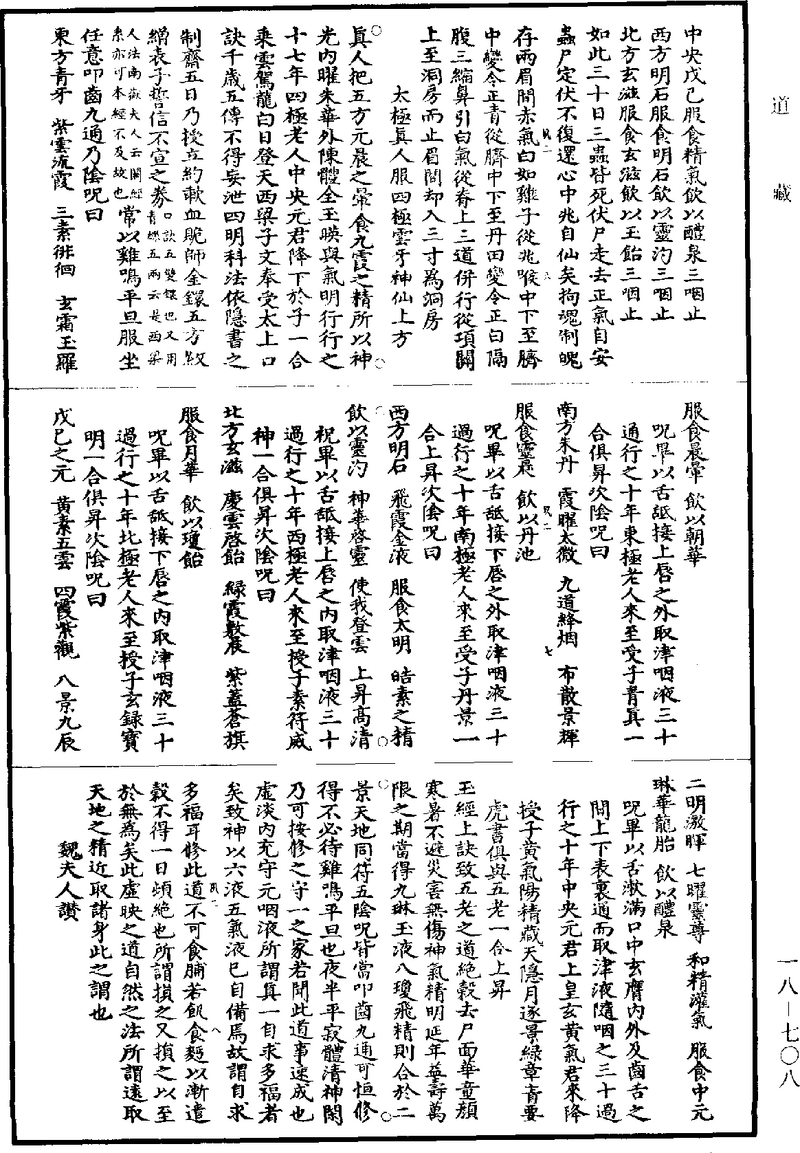 道藏
一八—七〇八
中央戊巳服食精氣飲以醴泉三咽止
西方明石服食明石飲以靈汋三咽止
北方玄滋服食玄滋飲以玉飴三咽止
如此三十日三蟲皆死伏尸走去正氣自安
蟲尸定伏不復還心中兆自仙矣拘魂制魄
存兩眉間赤氣白如雞子從兆喉中下至臍
中變令正青從臍中下至丹田變令正白隔
腹三縮鼻引白氣從脊上三道併行從項關
上至洞房而止眉間却入三寸爲洞房
太極真人服四極雲牙神仙上方
真人把五方元晨之暈食九霞之精所以神
光內曜朱華外陳體全玉暎與氣明行行之
十七年四極老人中央元君降下於子一合
乘雲駕龍白日登天西梁子文奉受太上口
訣千歲五傳不得妄泄四明科法依隱書之
制齋五日乃授立約歃血跪師金鐶五方紋
繒表子誓信不宣之券口訣五雙鐶也又用青蜾五兩云是西梁
人法南嶽夫人云闕經亦可本經不及故也常以雞鳴平旦服坐
任意叩齒九通乃陰呪曰
東方青牙　紫雲流霞　三素徘徊　玄霜玉羅
服食晨暈　飲以朝華
呪畢以舌舐接上唇之外取津咽液三十
通行之十年東極老人來至受子青真一
合俱昇次陰呪曰
南方朱丹　霞曜太微　九道絳烟　布散景輝
服食靈晨　飲以丹池
呪畢以舌舐接下唇之外取津咽液三十
過行之十年南極老人來至受子丹景一
合上昇次陰呪曰
西方明石　飛霞金液　服食太明　皓素之精
飲以靈汋　神華啓靈　使我登雲　上昇高清
祝畢以舌舐接上唇之內取津咽液三十
過行之十年西極老人來至授子素符威
神一合俱昇次陰呪曰
北方玄滋　慶雲啓飴　綠霞敷晨　紫蓋蒼旗
服食月華　飲以瓊飴
呪畢以舌舐接下唇之內取津咽液三十
過行之十年北極老人來至授子玄錄寶
明一合俱昇次陰呪曰
戊巳之元　黃素五雲　四霞紫觀　八景九辰
二明激暉　七曜靈尊　和精灌氣　服食中元
琳華龍胎　飲以醴泉
呪畢以舌漱滿口中玄膺內外及齒舌之
間上下表裏通而取津液隨咽之三十過
行之十年中央元君上皇玄黃氣君來降
授子黃氣陽精藏天隱月遂景綠章青要
虎書俱與五老一合上昇
玉經上訣致五老之道絕穀去尸面華童顏
寒暑不避災害無傷神氣精明延年益壽萬
限之期當得九琳玉液八瓊飛精則合於二
景天地同符五陰呪皆當叩齒九通可恒修
得不必待雞鳴平旦也夜半平寂體清神閑
乃可按修之守一之家若閒此道事速成也
虛淡內充守元咽液所謂真一自求多福者
矣致神以六液五氣液已自備焉故謂自求
多福耳修此道不可食脯若飢食麪以漸遣
穀不得一日頓絕也所謂損之又損之以至
於無爲矣此虛映之道自然之法所謂遠取
天地之精近取諸身此之謂也
魏夫人讚